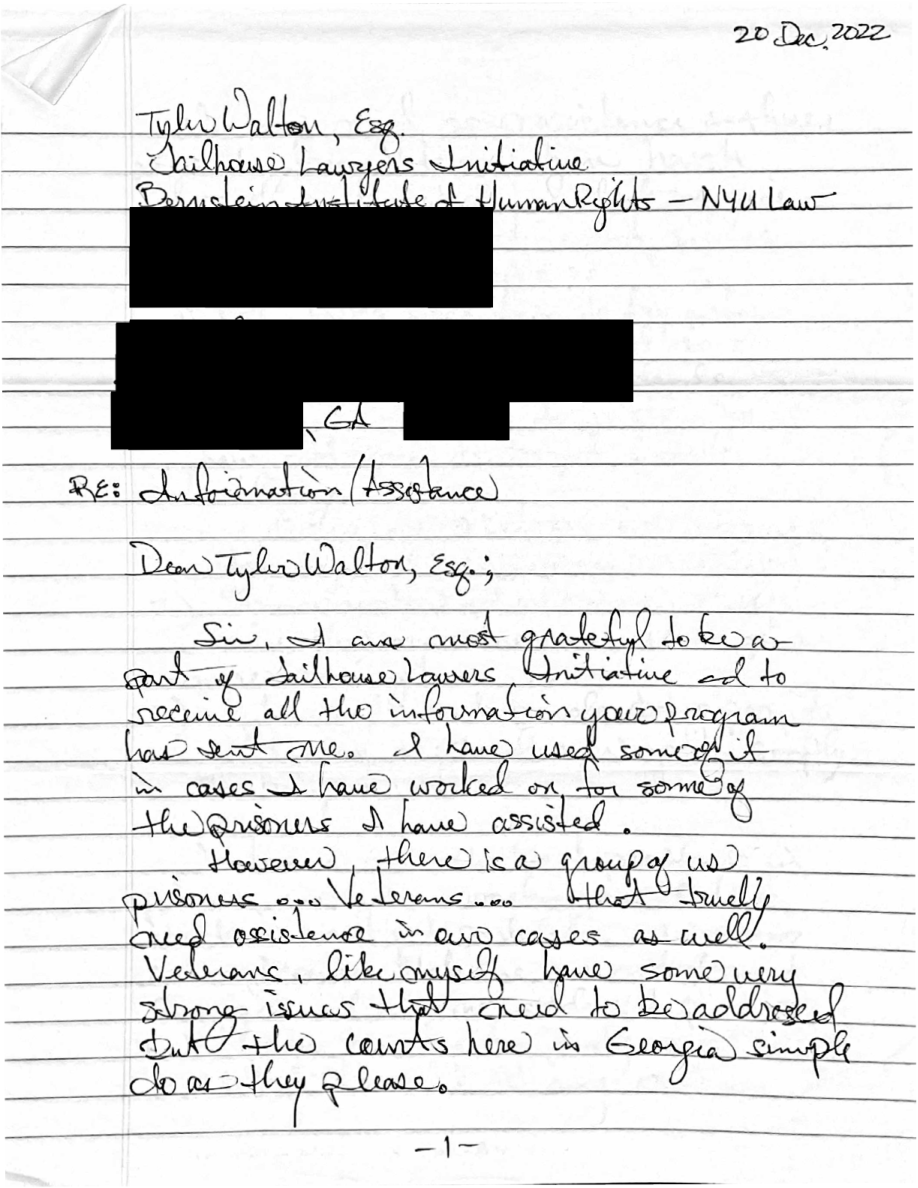 20 Dec. 2022
Tyler Walton, Esq.
Jailhouse Lawyers Initiative
Bernstein Institute of Human Rights – NYU Law
, GA
RE: Information/Assistance
Dear Tyler Walton, Esq.;
Sir, I am most grateful to be a
part of Jailhouse Lawers Initiative ad to
receive all the information your program
has sent me. I have used some of it
in cases I have worked on for some of
the prisoners I have assisted.
However, there is a group of us
prisoners ... Veterans ... that truely
need assistence in our cases as well.
Veterans, like myself have some very
strong issues that need to be addressed
but the courts here in Georgia simple
do as they please.
-1-